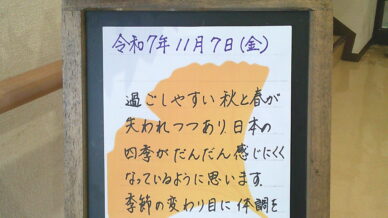 令和7年11月7日(金)
過ごしやすい秋と春が
失われつつあり日本の
四季がだんだん感じにくく
なっているように思います。
季節の変わり目に体調を